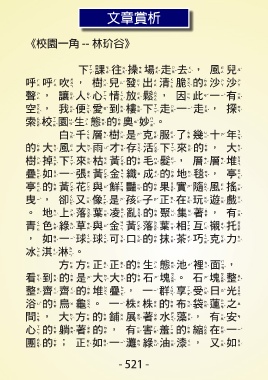 文章賞析
《校園一角 -- 林玠谷》
下課往操場走去，風兒
呼呼吹，樹兒發出清脆的沙沙
聲，讓人心情放鬆，因此一有
空，我便愛到樓下走一走，探
索校園生態的奧妙。
白千層樹是克服了幾十年
的大風大雨才存活下來的，大
樹掉下來枯黃的毛髮，層層堆
疊如一張黃金織成的地毯，亭
亭的黃花與鮮豔的果實隨風搖
曳，卻又像是孩子正在玩遊戲
。地上落葉凌亂的聚集著，有
青色綠草與金黃落葉相互襯托
，如一球球可口的抹茶巧克力
冰淇淋。
方方正正的生態池裡面，
看到的是大大的石塊。石塊整
整齊齊的堆疊，一群享受日光
浴的烏龜。一株株的布袋蓮之
間，大方的舖展著水藻，有安
心的躺著的，有害羞的縮在一
團的；正如一灘綠油漆，又如
- 521 -